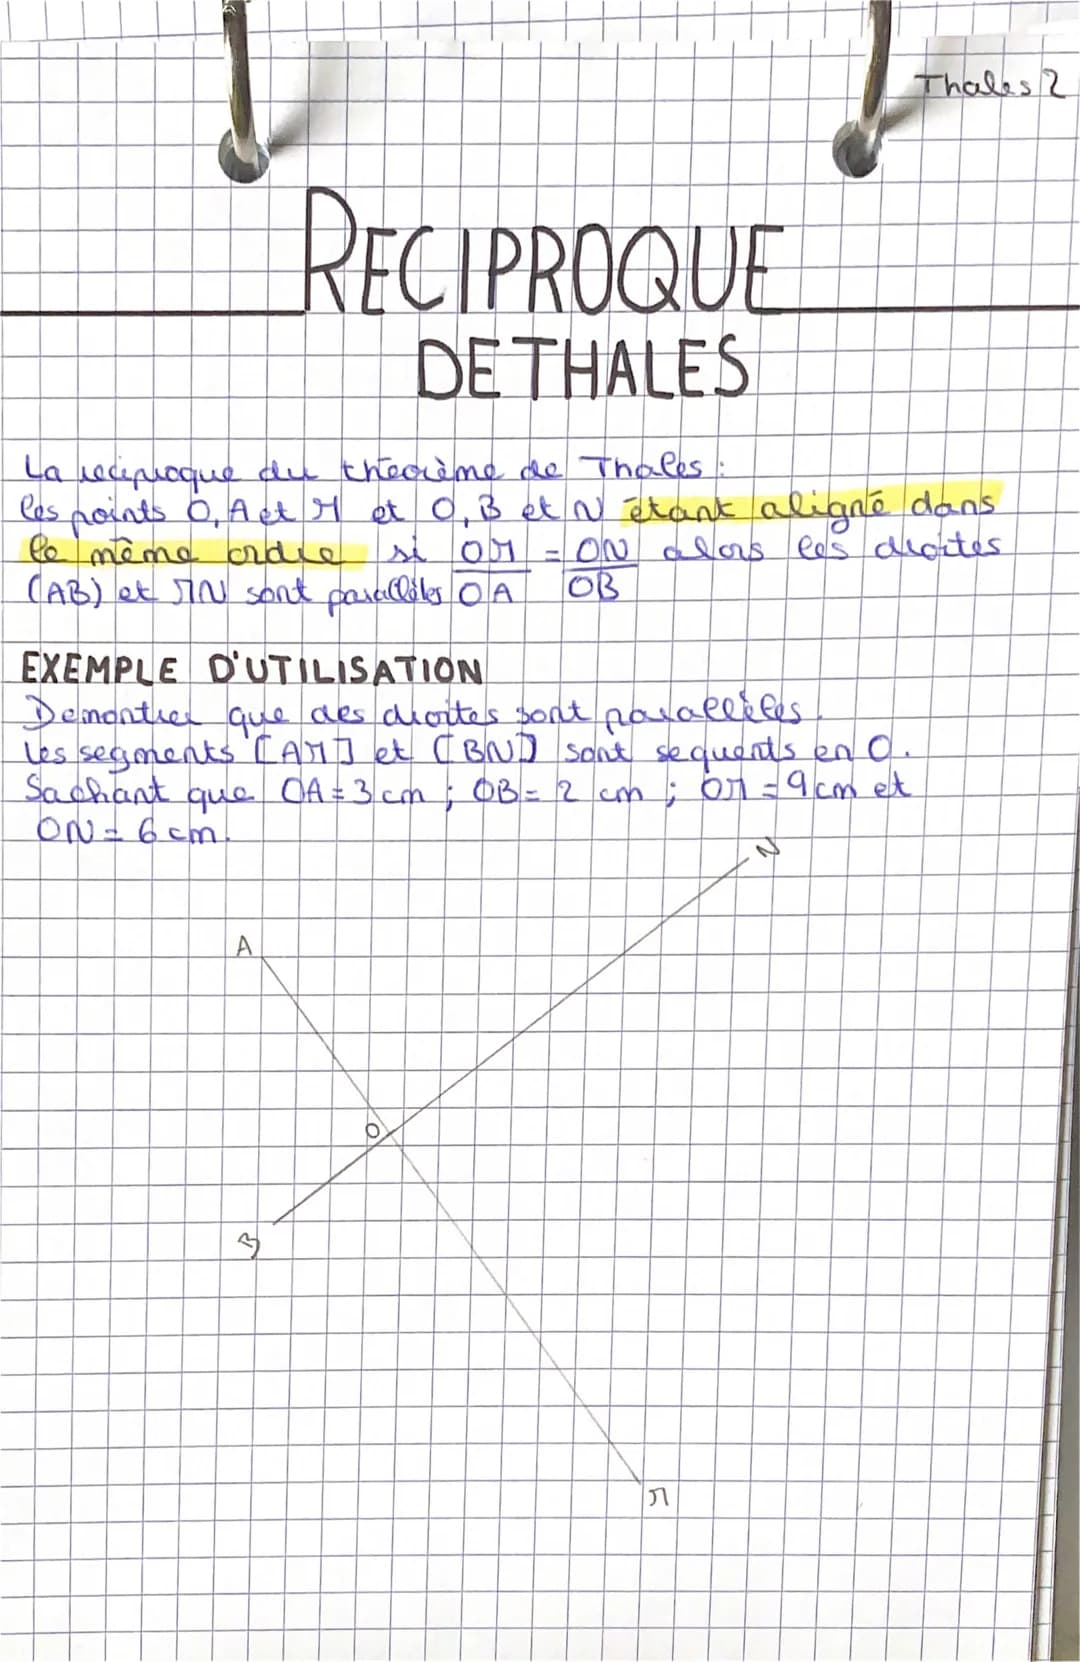 Thales 2
RECIPROQUE
DE THALES
La reciproque du théorème de Thales :
les points O, A et M et O, B et N étant aligné dans
le même ordre si OM = ON alors les droites
(AB) et MN sont parallèles OA OB
EXEMPLE D'UTILISATION
Demontrer que des droites sont parallèles.
Les segments [AM] et [BN] sont sequents en O.
Sachant que OA = 3 cm ; OB = 2 cm ; OM = 9 cm et
ON = 6 cm.
N
A
O
B
M